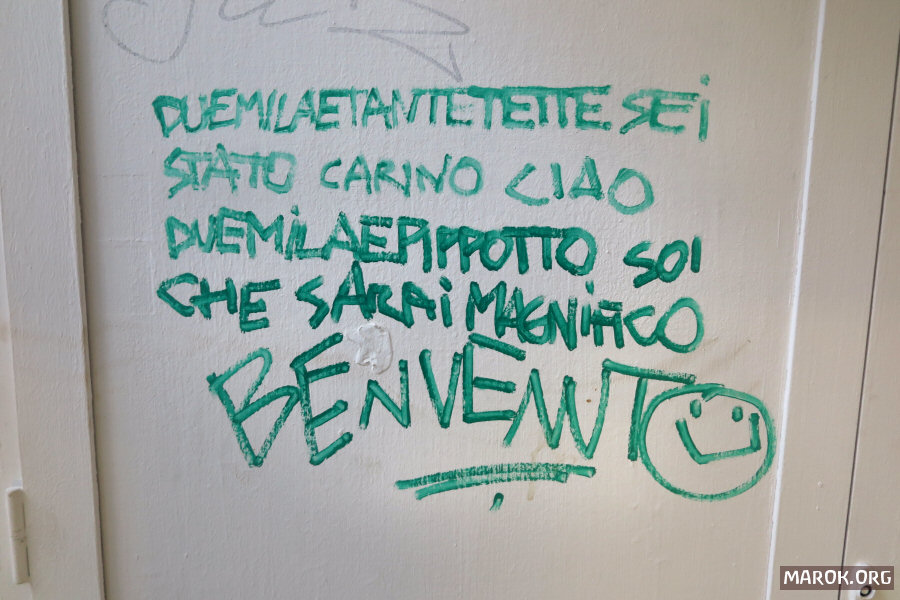 DUEMILAETANTETETTE SEi
STATO CARINO CIAO
DUEMiLAEPIPPOTTO SOI
CHE SARAi MAGNiFICO
BENVENUTO
MAROK.ORG